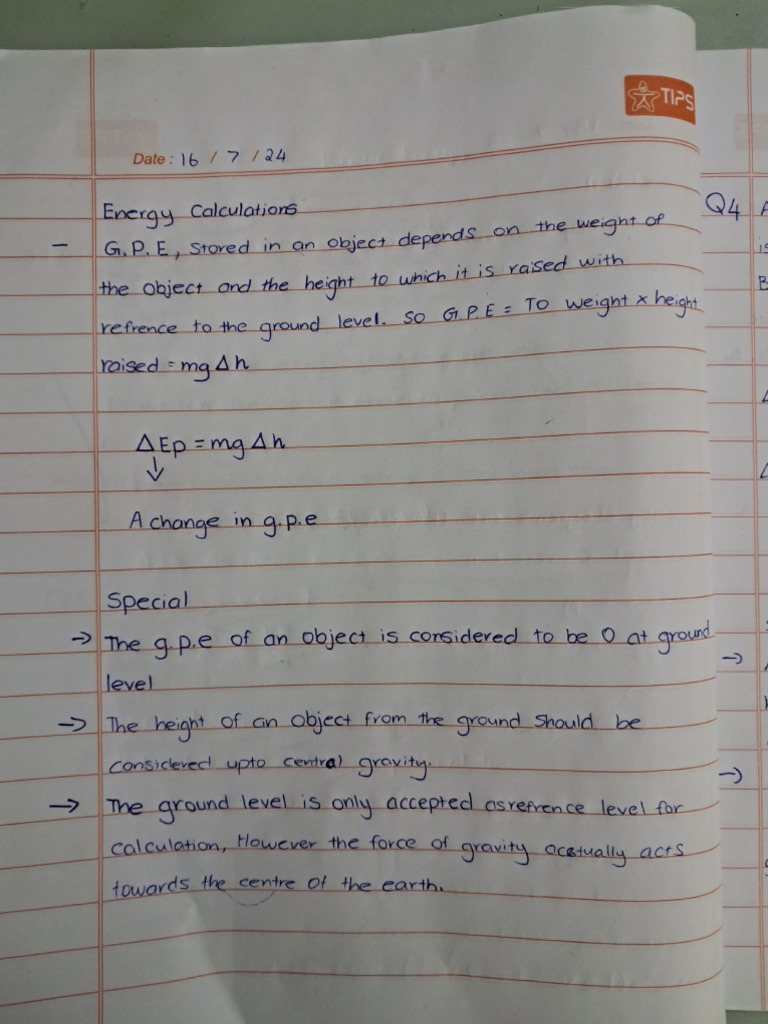 TIPS
Date : 16 / 7 / 24
Energy Calculations
– G.P.E, stored in an object depends on the weight of
the object and the height to which it is raised with
refrence to the ground level. so G.P.E = To weight x height
raised = mg Δh
ΔEp = mg Δh
↓
A change in g.p.e
Special
→ The g.p.e of an object is considered to be 0 at ground
level
→ The height of an object from the ground should be
considered upto central gravity.
→ The ground level is only accepted as refrence level for
calculation, However the force of gravity acetually acts
towards the centre of the earth.
Q4
→
→